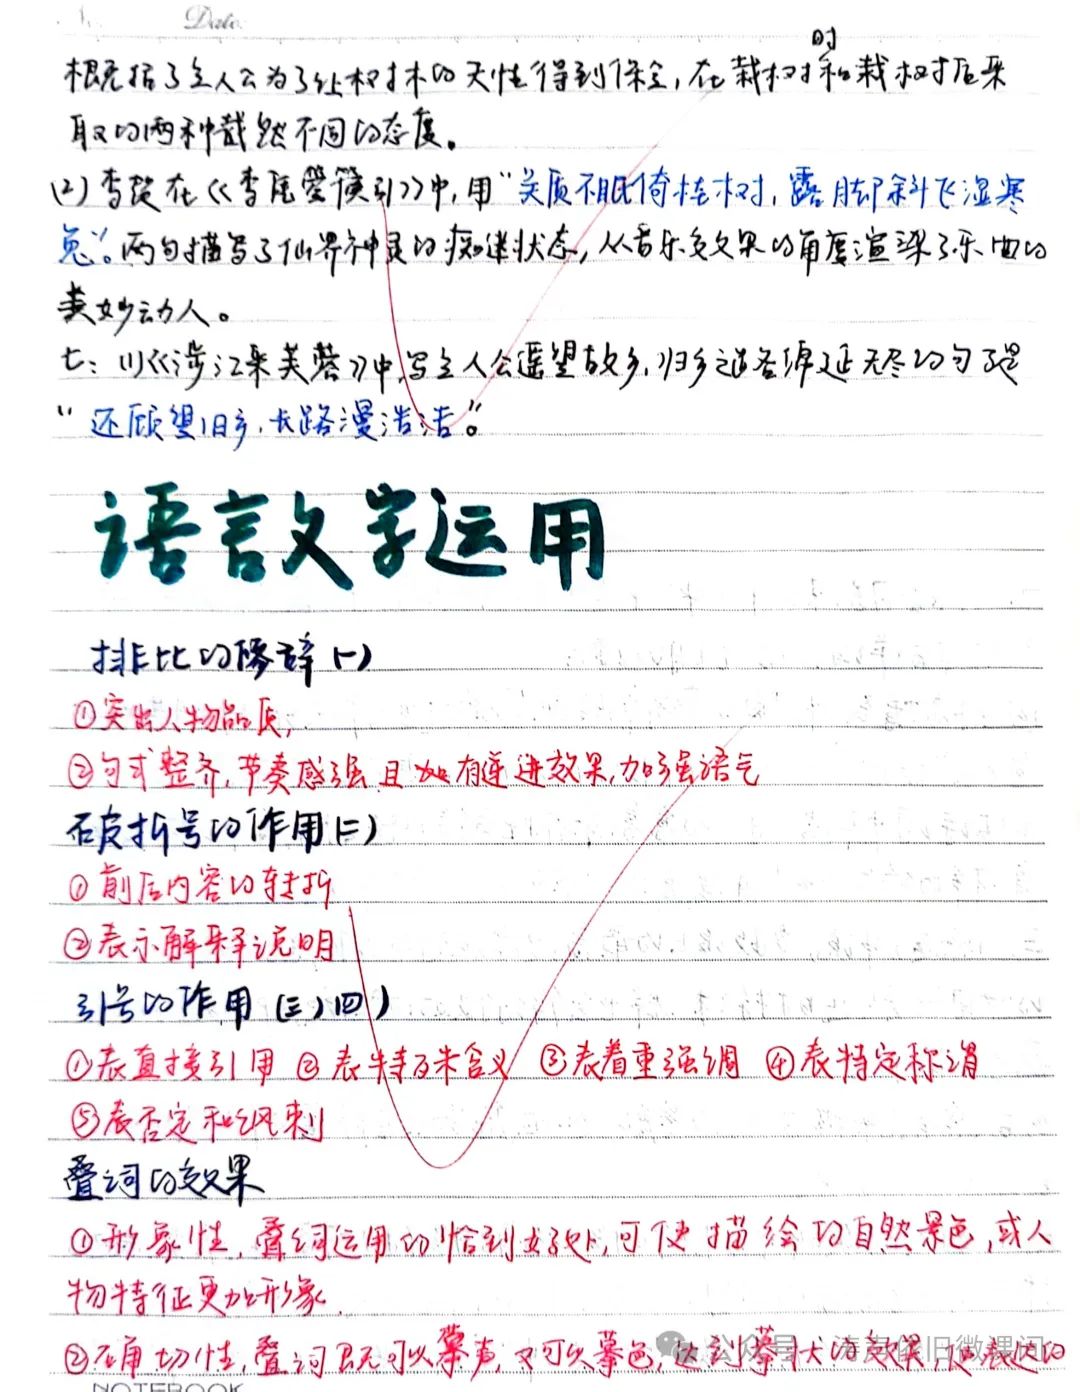 Date
时
概括了主人公为了让树木的天性得到保全，在栽树和栽树后采
取的两种截然不同的态度。
(2)李贺在《李凭箜篌引》中，用“吴质不眠倚桂树，露脚斜飞湿寒
兔”。两句描写了仙界神灵的痴迷状态，从音乐效果的角度渲染了乐曲的
美妙动人。
七：(1)《涉江采芙蓉》中，写主人公遥望故乡，归乡之路绵延无尽的句子是
“还顾望旧乡，长路漫浩浩”。
语言文字运用
排比的修辞(一)
①突出人物品质，
②句式整齐，节奏感强且有递进效果，加强语气
破折号的作用(二)
①前后内容的转折
②表示解释说明
引号的作用(三)(四)
①表直接引用 ②表特殊含义 ③表着重强调 ④表特定称谓
⑤表否定和讽刺
叠词的效果
①形象性，叠词运用的恰到好处，可使描绘的自然景色，或人
物特征更加形象
②确切性，叠词既可以摹声，又可以摹色，达到摹状的效果，使表达的
公众号·涛声依旧微课问
NOTEBOOK